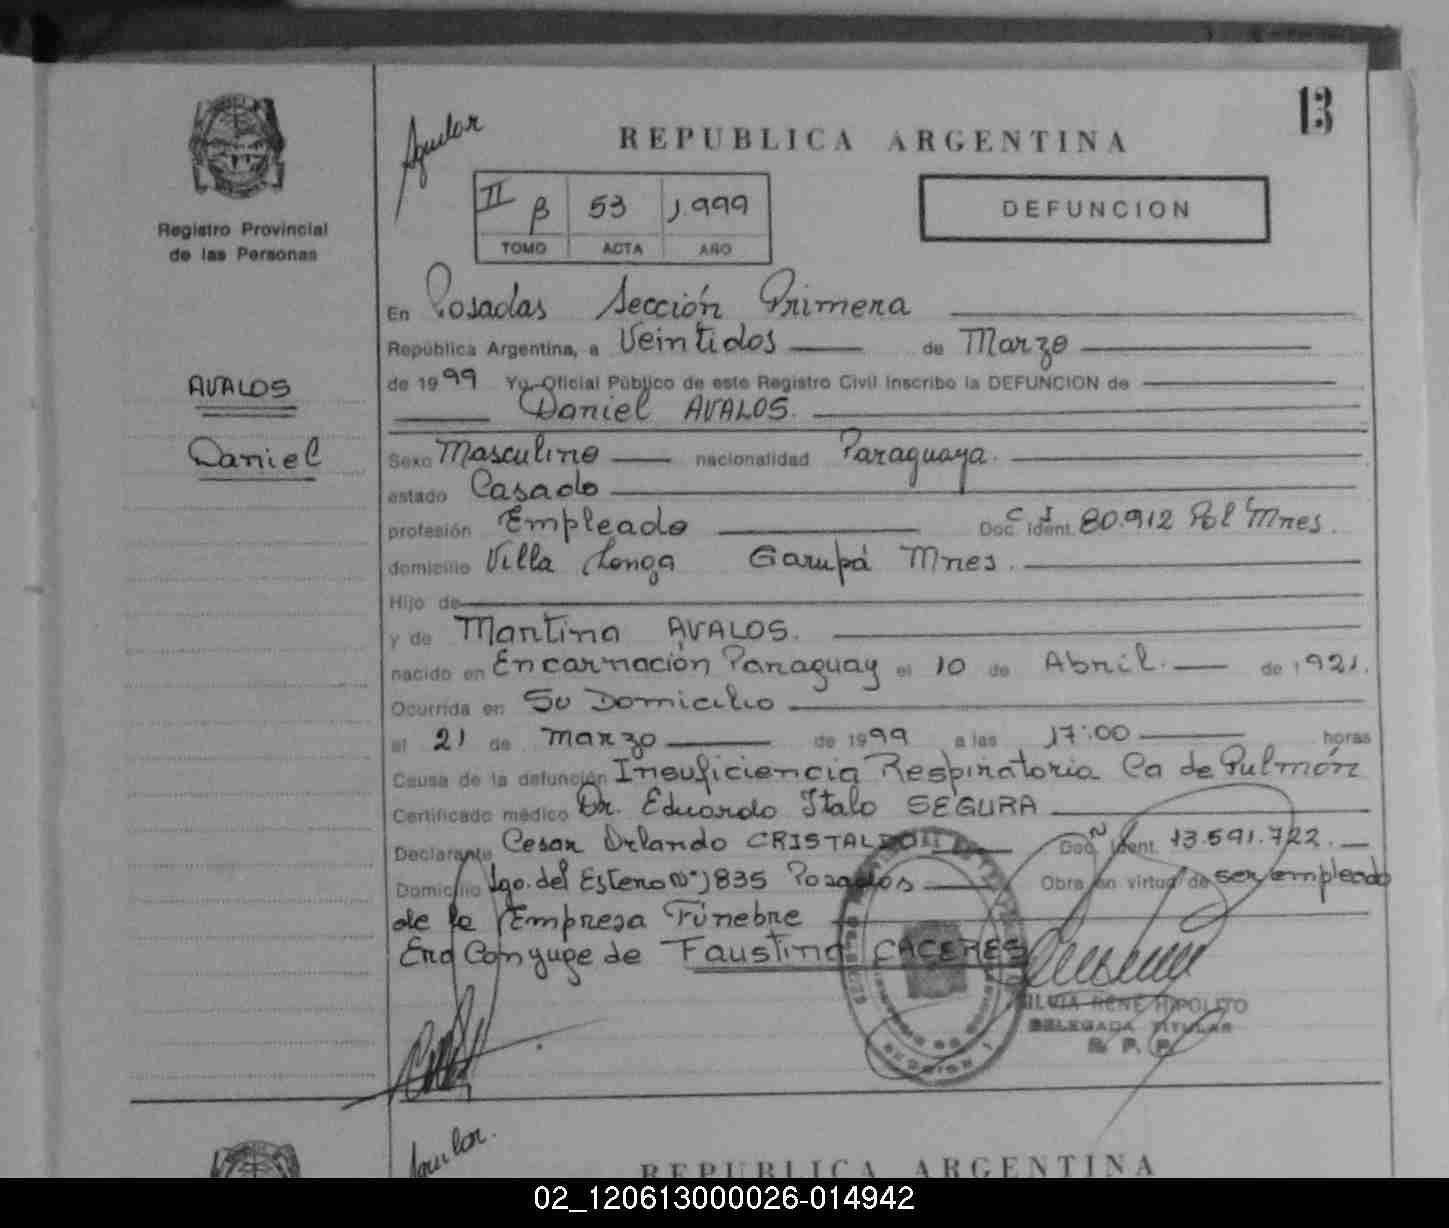 13
Aguilar
REPUBLICA ARGENTINA
Registro Provincial
de las Personas
II β 53 1.999
TOMO ACTA AÑO
DEFUNCION
En Posadas Sección Primera
República Argentina, a Veintidos de Marzo
de 1999 Yo, Oficial Público de este Registro Civil inscribo la DEFUNCION de
Daniel AVALOS.
AVALOS
Daniel
Sexo Masculino nacionalidad Paraguaya.
estado Casado
profesión Empleado Doc. Ident. C I 80.912 Pol Mnes.
domicilio Villa Longa Garupá Mnes.
Hijo de
y de Martina AVALOS.
nacido en Encarnación Paraguay el 10 de Abril. de 1921.
Ocurrida en Su Domicilio
el 21 de marzo de 1999 a las 17:00 horas
Causa de la defunción Insuficiencia Respiratoria Ca de Pulmón
Certificado médico Dr. Eduardo Italo SEGURA
Declarante Cesar Orlando CRISTALDO Doc. Ident. 13.591.722.
Domicilio Sgo. del Estero Nº 1835 Posadas Obra en virtud de ser empleado
de la Empresa Fúnebre
Era Conyuge de Faustina CACERES
SILVIA RENE HIPOLITO
DELEGADA TITULAR
R. P. P.
SECCION 1
Aguilar.
REPUBLICA ARGENTINA
02_120613000026-014942